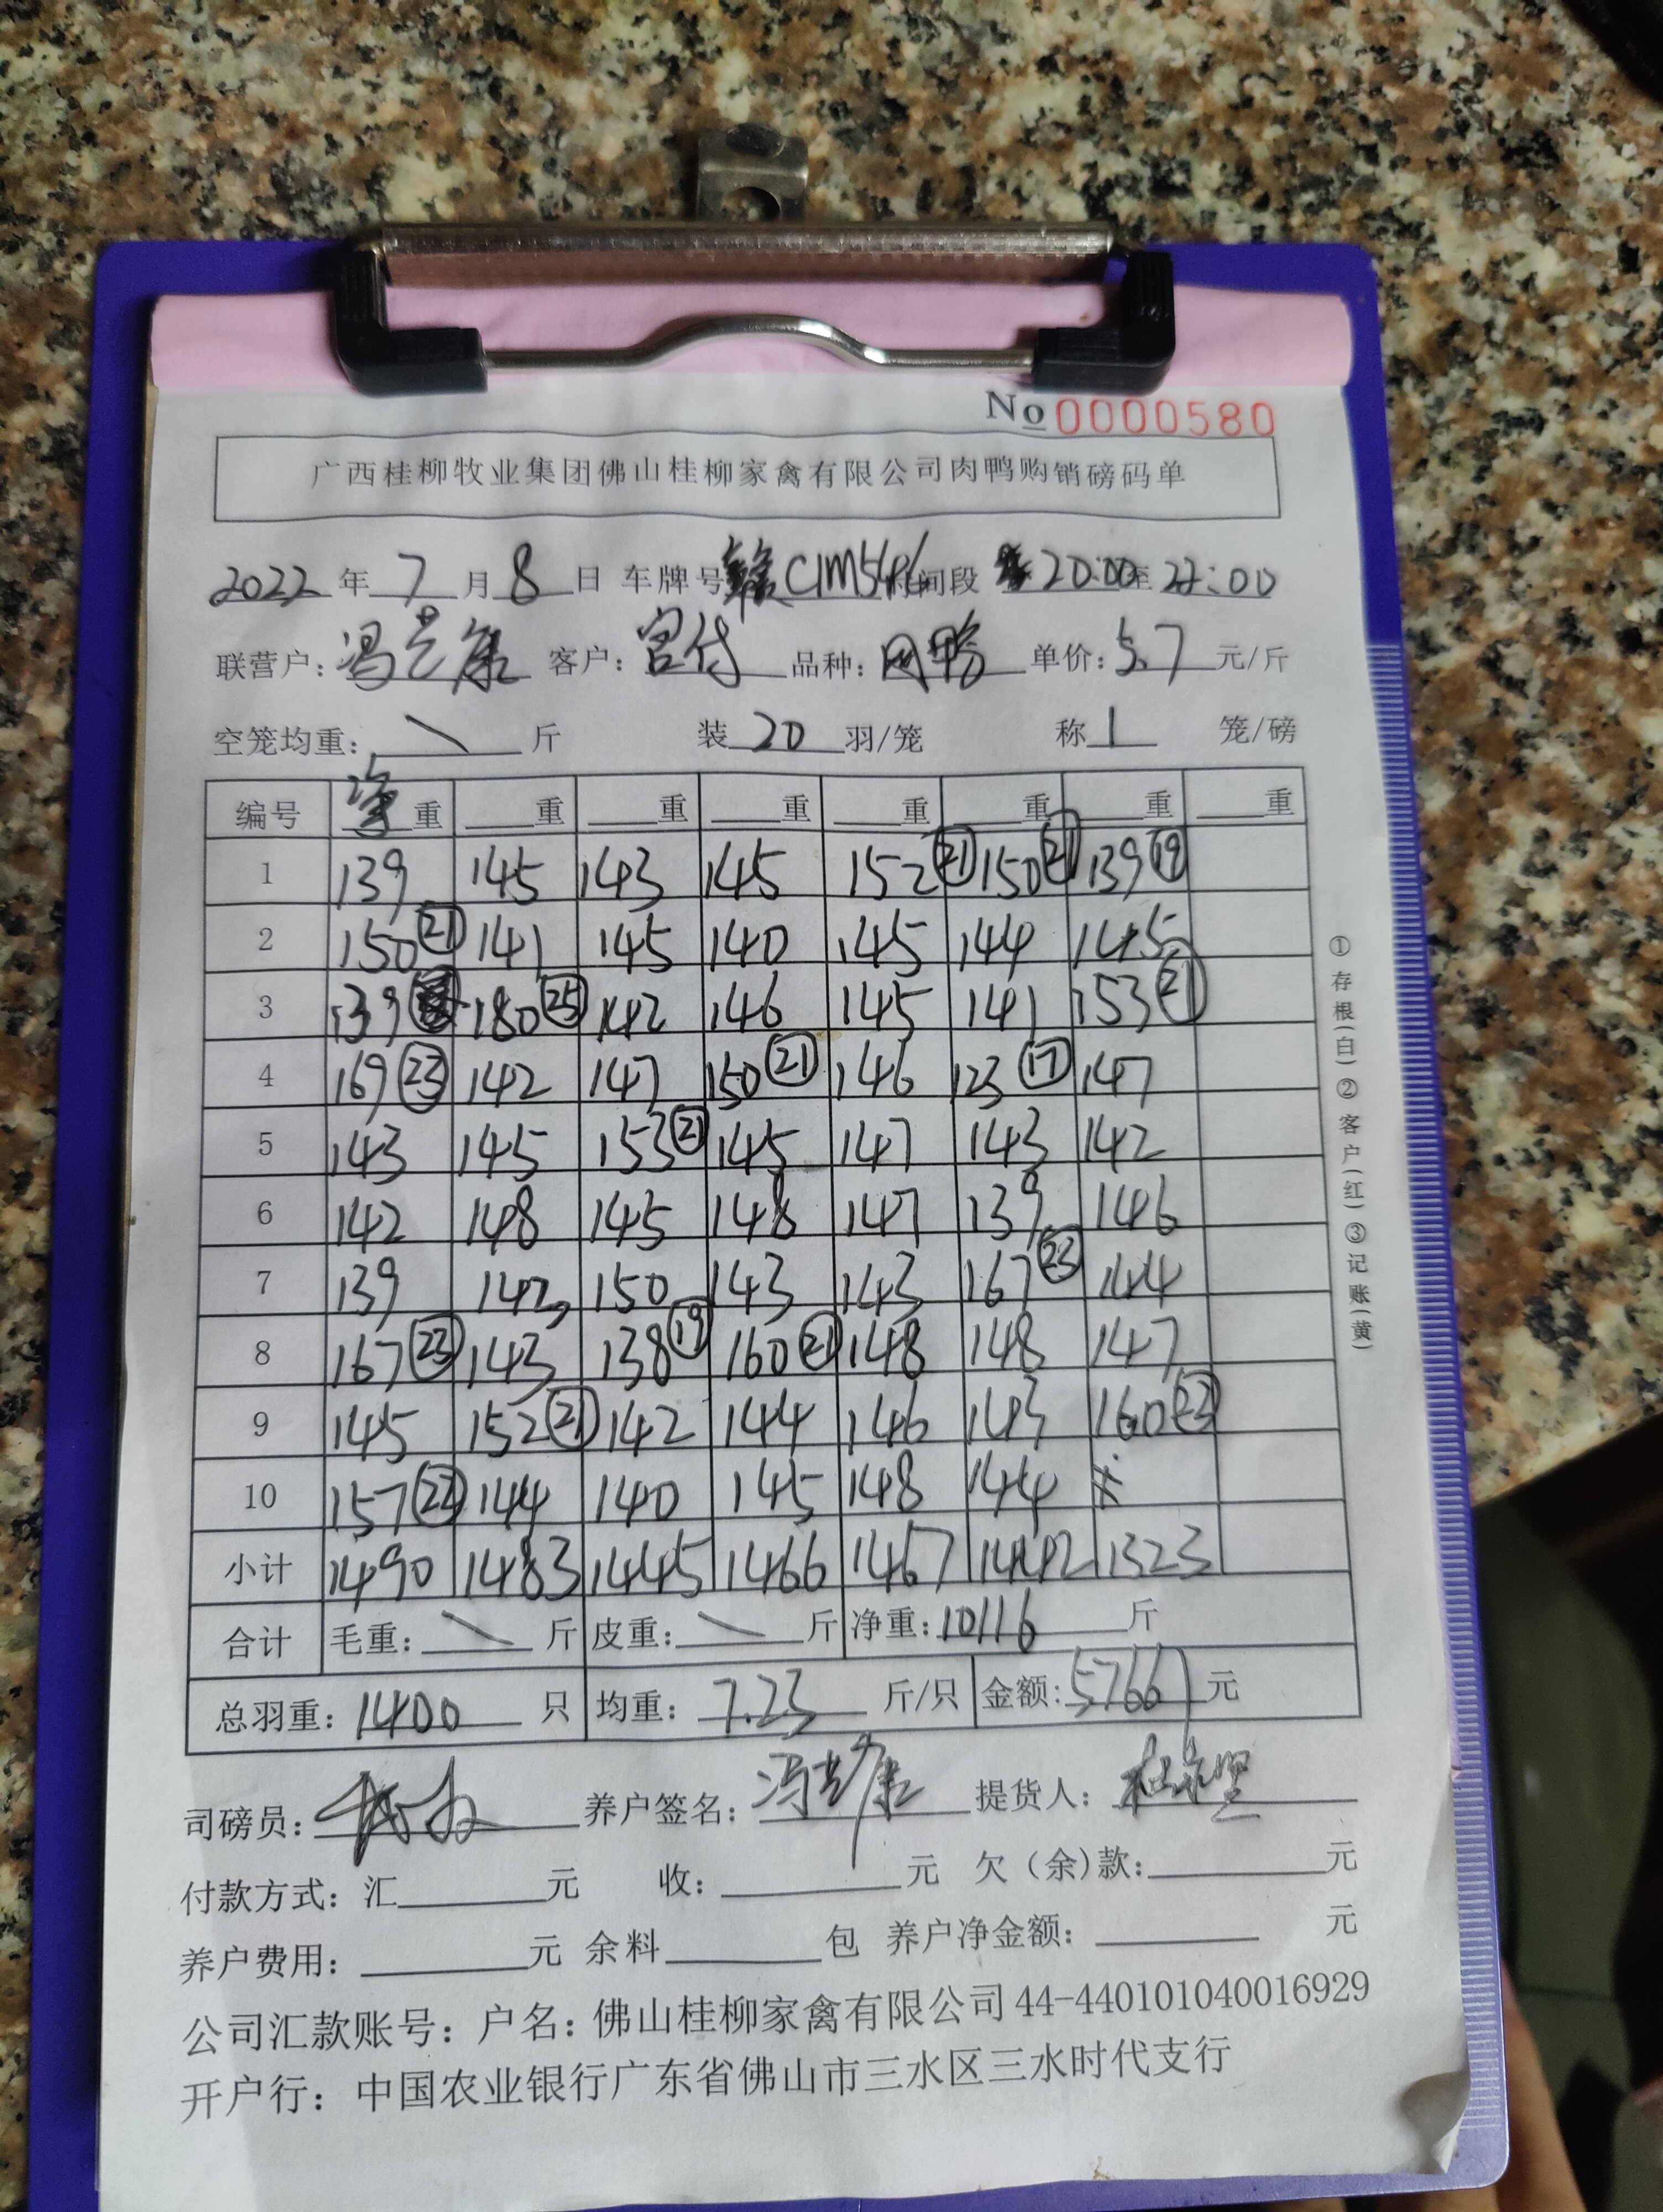 No 0000580
广西桂柳牧业集团佛山桂柳家禽有限公司肉鸭购销磅码单
2022 年 7 月 8 日 车牌号 赣C1M54 时间段 20:00 至 22:00
联营户: 冯 康 客户: 宫传 品种: 肉鸭 单价: 5.7 元/斤
空笼均重: \ 斤 装 20 羽/笼 称 1 笼/磅
编号 净重 重 重 重 重 重 重 重
1 139 145 143 145 152 (21) 150 (21) 139 (19)
2 150 (21) 141 145 140 145 144 145
3 139 180 (25) 142 146 145 141 153 (21)
4 169 (23) 142 147 150 (21) 146 123 (17) 147
5 143 145 153 (21) 145 147 143 142
6 142 148 145 148 147 139 146
7 139 143 150 143 143 167 (23) 144
8 167 (23) 143 138 (19) 160 (21) 148 148 147
9 145 152 (21) 142 144 146 143 160 (23)
10 157 (22) 144 140 145 148 144
小计 1490 1483 1445 1466 1467 1442 1323
合计 毛重: \ 斤 皮重: \ 斤 净重: 10116 斤
总羽重: 1400 只 均重: 7.23 斤/只 金额: 57661 元
司磅员: 养户签名: 冯 康 提货人:
付款方式: 汇 元 收: 元 欠(余)款: 元
养户费用: 元 余料 包 养户净金额: 元
公司汇款账号: 户名: 佛山桂柳家禽有限公司 44-440101040016929
开户行: 中国农业银行广东省佛山市三水区三水时代支行
①存根(白)②客户(红)③记账(黄)